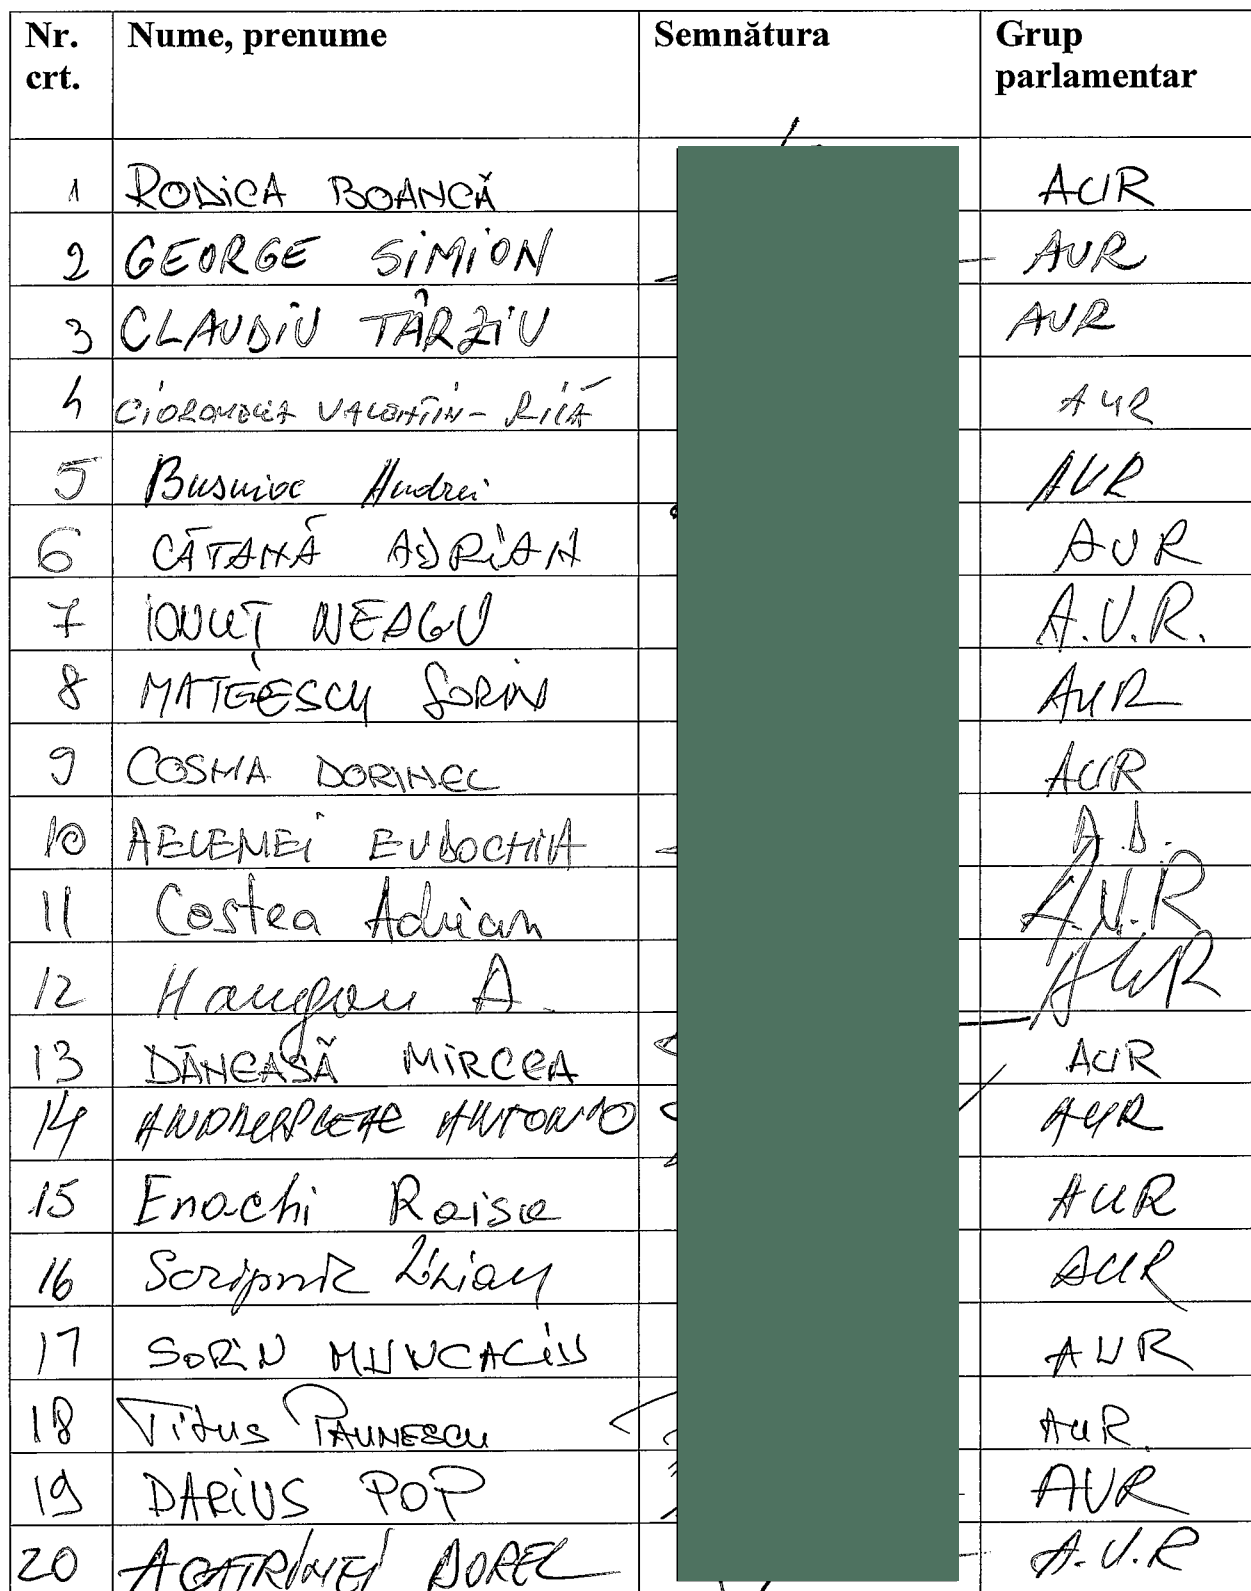 Nr. crt. Nume, prenume Semnătura Grup parlamentar
1 RODICA BOANCĂ AUR
2 GEORGE SIMION AUR
3 CLAUDIU TÂRZIU AUR
4 VALENTIN-RILĂ AUR
5 Busuioc Andrei AUR
6 CĂTANĂ ADRIAN AUR
7 IONUȚ NEAGU A.U.R.
8 MATEESCU SORIN AUR
9 COSMA DORINEL AUR
10 AELENEI EVDOCHIA
11 Costea Adrian A.U.R
12 Hangan A. AUR
13 DĂNEASĂ MIRCEA AUR
14 ANTONIO AUR
15 Enachi Raisa AUR
16 Scripnic Lilian AUR
17 SORIN MUNCACIU AUR
18 Titus PĂUNESCU AUR.
19 DARIUS POP AUR
20 ACATRINEI DOREL A.U.R